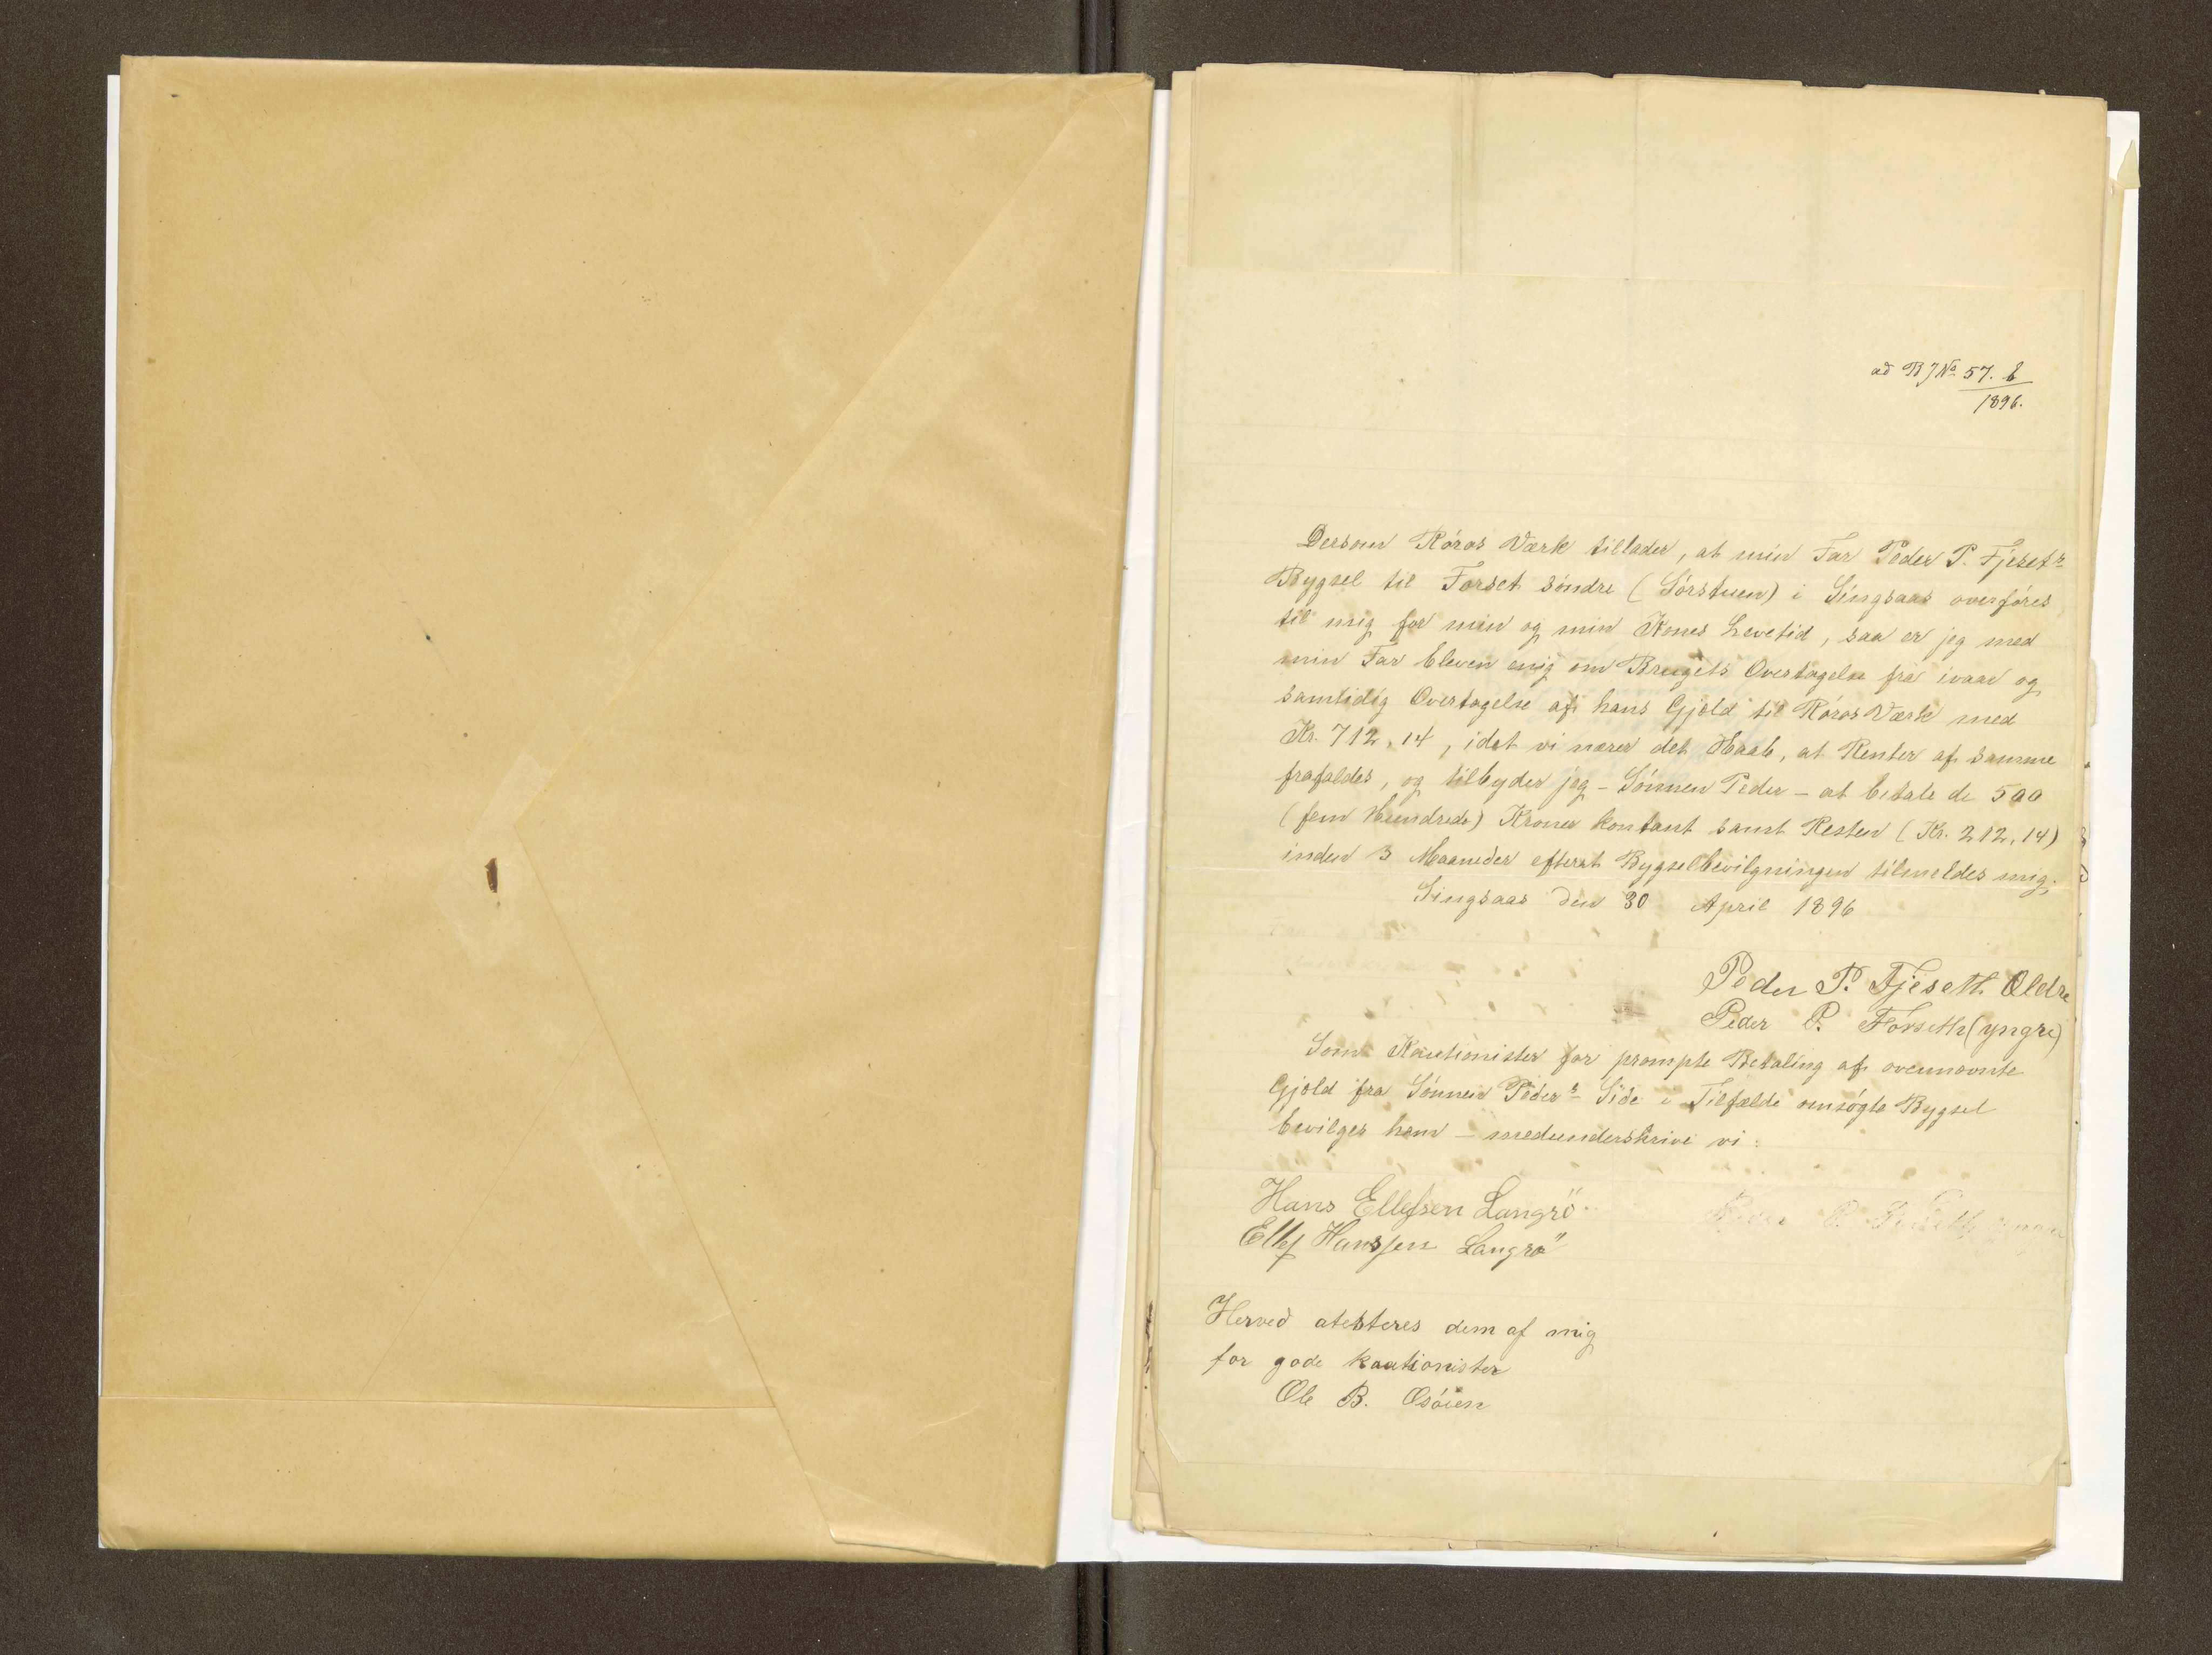 ad B J No 57. b
1896.
Dersom Röros Værk tillader, at min Far Peder P. Fjesets
Bygsel til Forset söndre (Sörstuen) i Singsaas overföres
til mig for min og min Kones Levetid, saa er jeg med
min Far bleven enig om Brugets Overtagelse fra ivaar og
samtidig Overtagelse af hans Gjæld til Röros Værk med
Kr. 712,14, idet vi nærer det Haab, at Renter af samme
frafaldes, og tilbyder jeg – Sönnen Peder – at betale de 500
(fem Hundrede) Kroner kontant samt Resten (Kr. 212,14)
inden 3 Maaneder efterat Bygselbevilgningen tilmeldes mig.
Singsaas den 30 April 1896
Peder P. Fjeseth Eldre
Peder P. Forseth (yngre)
Som Kautionister for prompte Betaling af ovennævnte
Gjæld fra Sönnen Peders Side i Tilfælde omsögte Bygsel
bevilges ham – medunderskrive vi:
Hans Ellefsen Langrö
Ellef Hanssen Langrö
Herved atesteres dem af mig
for gode kautionister
Ole B. Osöien